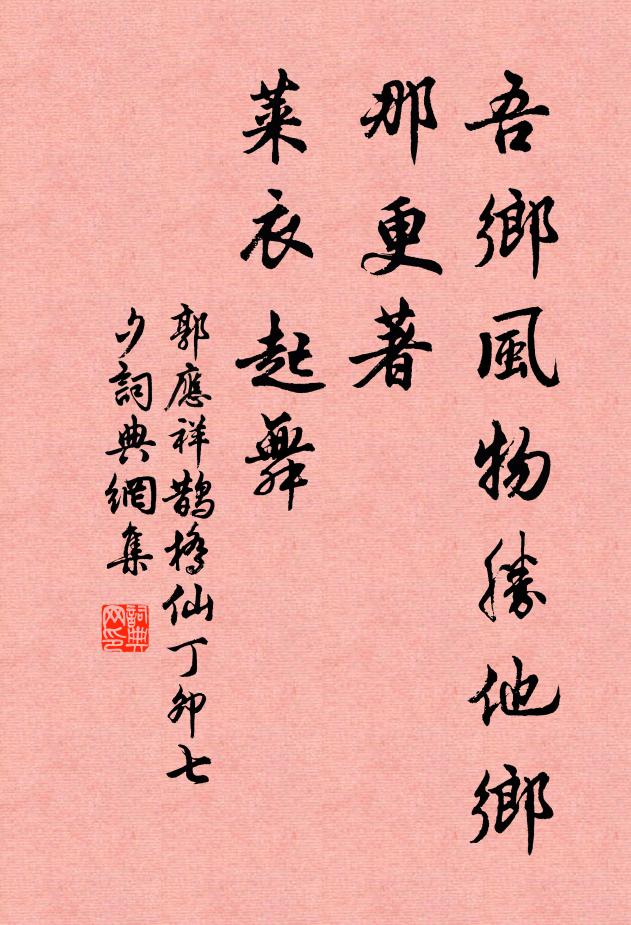 吾鄉風物勝他鄉
那更著
萊衣起舞
郭應祥鵲橋仙丁卯七
夕詞典網集
詞典
网印